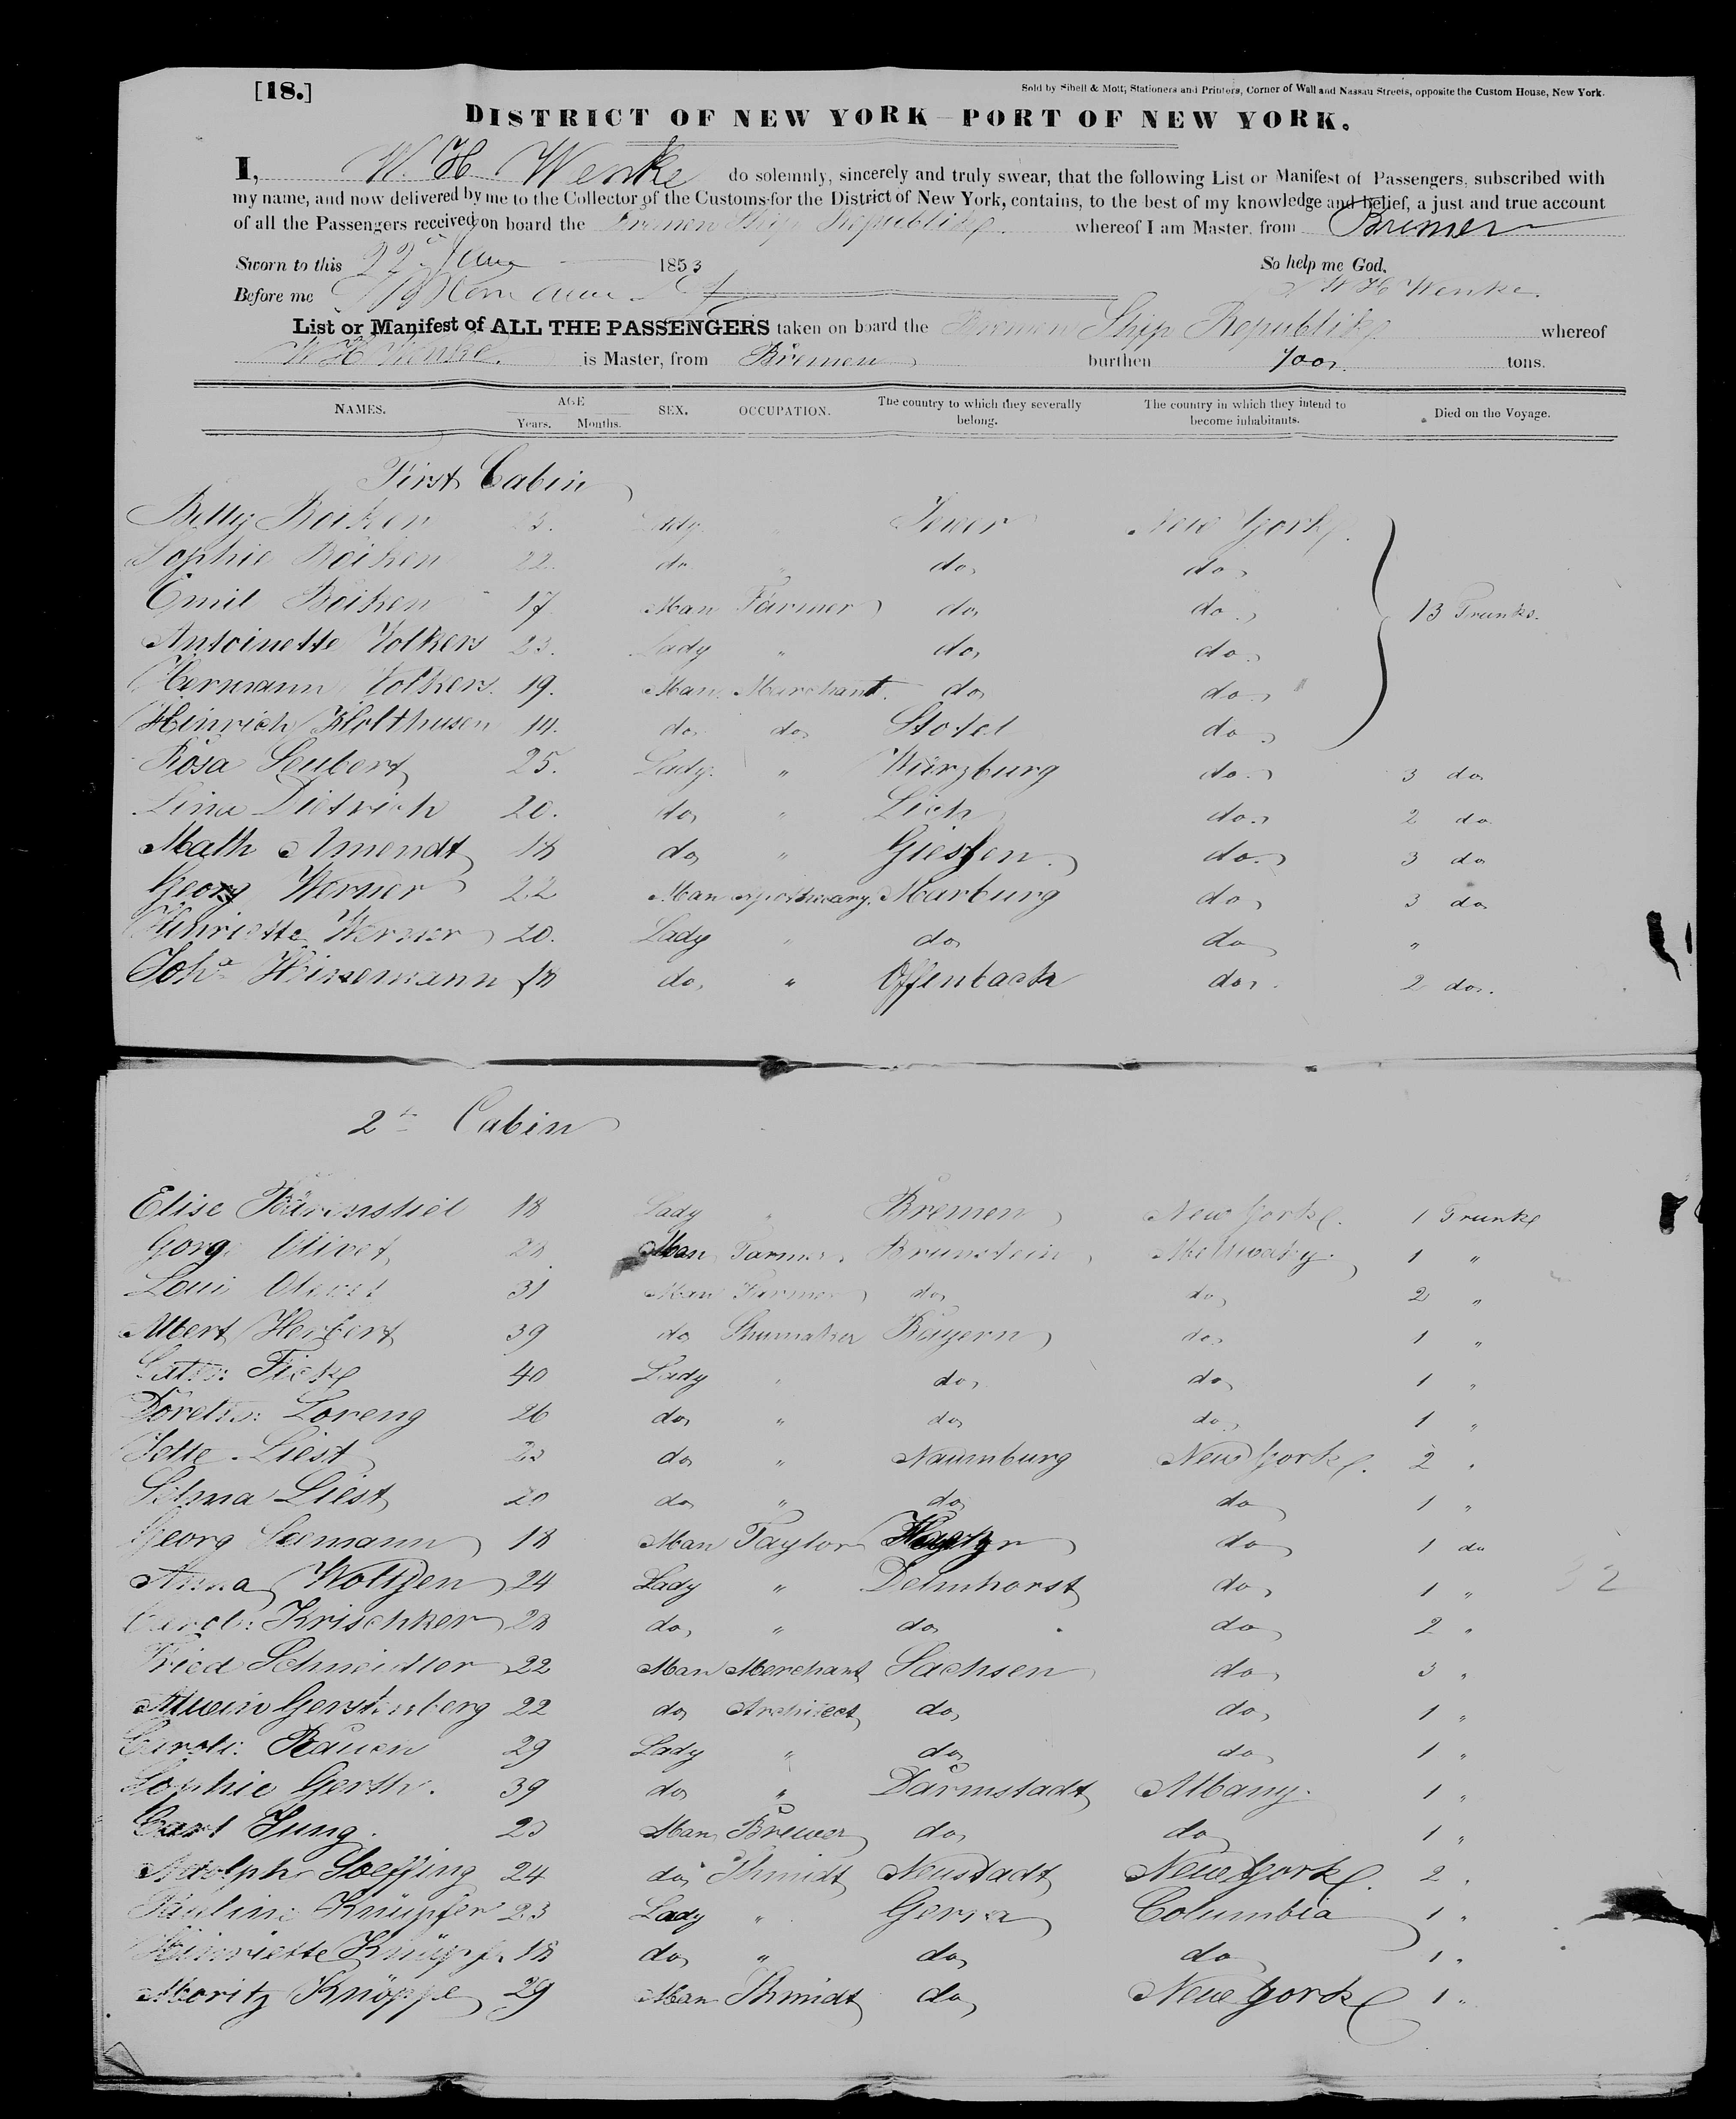 [18.] Sold by Sibell & Mott, Stationers and Printers, Corner of Wall and Nassau Streets, opposite the Custom House, New York.
DISTRICT OF NEW YORK - PORT OF NEW YORK.
I, W. H Wenke do solemnly, sincerely and truly swear, that the following List or Manifest of Passengers, subscribed with
my name, and now delivered by me to the Collector of the Customs for the District of New York, contains, to the best of my knowledge and belief, a just and true account
of all the Passengers received on board the Bremen Ship Republik whereof I am Master, from Bremen
Sworn to this 22 June 1853 So help me God.
Before me W H Wenke.
List or Manifest of ALL THE PASSENGERS taken on board the Bremen Ship Republik whereof
W H Wenke. is Master, from Bremen burthen 700 tons.
NAMES. AGE Years. Months. SEX. OCCUPATION. The country to which they severally belong. The country in which they intend to become inhabitants. Died on the Voyage.
First Cabin
Betty Boiken 25. Lady " Jever New York.
Sophie Boiken 22. do " do do
Emil Boiken 17 Man Farmer do do 13 Trunks.
Antoinette Volkers 23. Lady " do do
Hermann Volkers. 19. Man Marchant. do do
Heinrich Holthusen 14. do do Stotel do
Rosa Seubert 25. Lady. " Würzburg do 3 do
Lina Dietrich 20. do " Lich do 2 do
Math Amendt 18 do " Giessen do 3 do
Georg Werner 22 Man Apothecary. Marburg do 3 do
Henriette Werner 20. Lady " do do "
Joha Heinemann 18 do " Offenbach do 2 do
2t Cabin
Elise 18 Lady " Bremen New York. 1 Trunk
Gorg Olivet 28 Man Farmer Brunstein 1 "
Loui 31 Man Farmer do do 2 "
Albert Herbert 39 do Shumaker Bayern do 1 "
Cath: Ficke 40 Lady " do do 1 "
Doreth: Loreng 26 do " do do 1 "
Jette Liest 23 do " Naumburg New York. 2 "
Selma Liest 20 do " do do 1 "
Georg Seemann 18 Man Taylor do 1 do
Anna Woltjen 24 Lady " Delmhorst do 1 "
Carol: Krischker 28 do " do do 2 "
Fried Schneidler 22 Man Merchant Sachsen do 3 "
Alwin Gerstenberg 22 do Architect do do 1 "
Caroli: Rauen 29 Lady " do do 1 "
Sophie Gerth. 39 do " Darmstadt Albany. 1 "
Carl Jung. 23 Man Brewer do do 1 "
Adolph Soeffing 24 do Shmidt Neustadt New York. 2 "
Pauline Knüpfer 23 Lady " Gera Columbia 1 "
Henriette Knüpf. 18 do " do do 1 "
Moritz Knöppe 29 Man Shmidt do New York 1 "